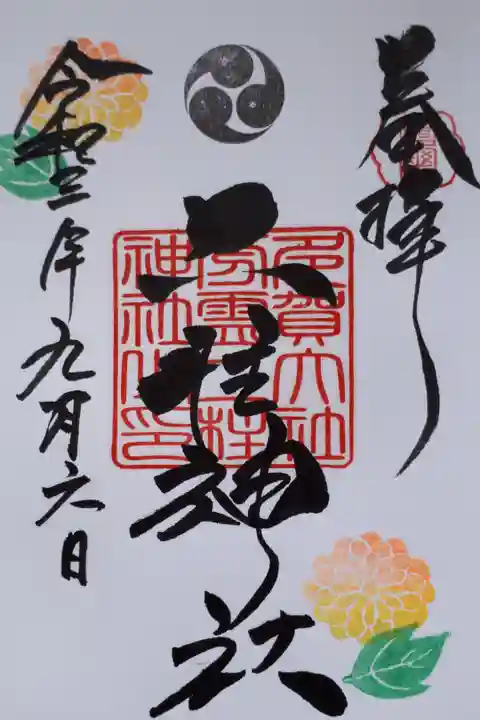 奉拝
多賀大社
分霊二柱
神社之印
二柱神社
令和三年九月六日